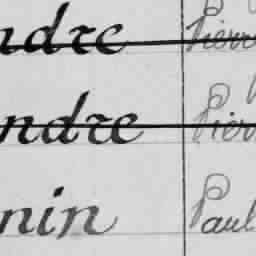 ndre Pierr
ndre Pierr
nin Paul